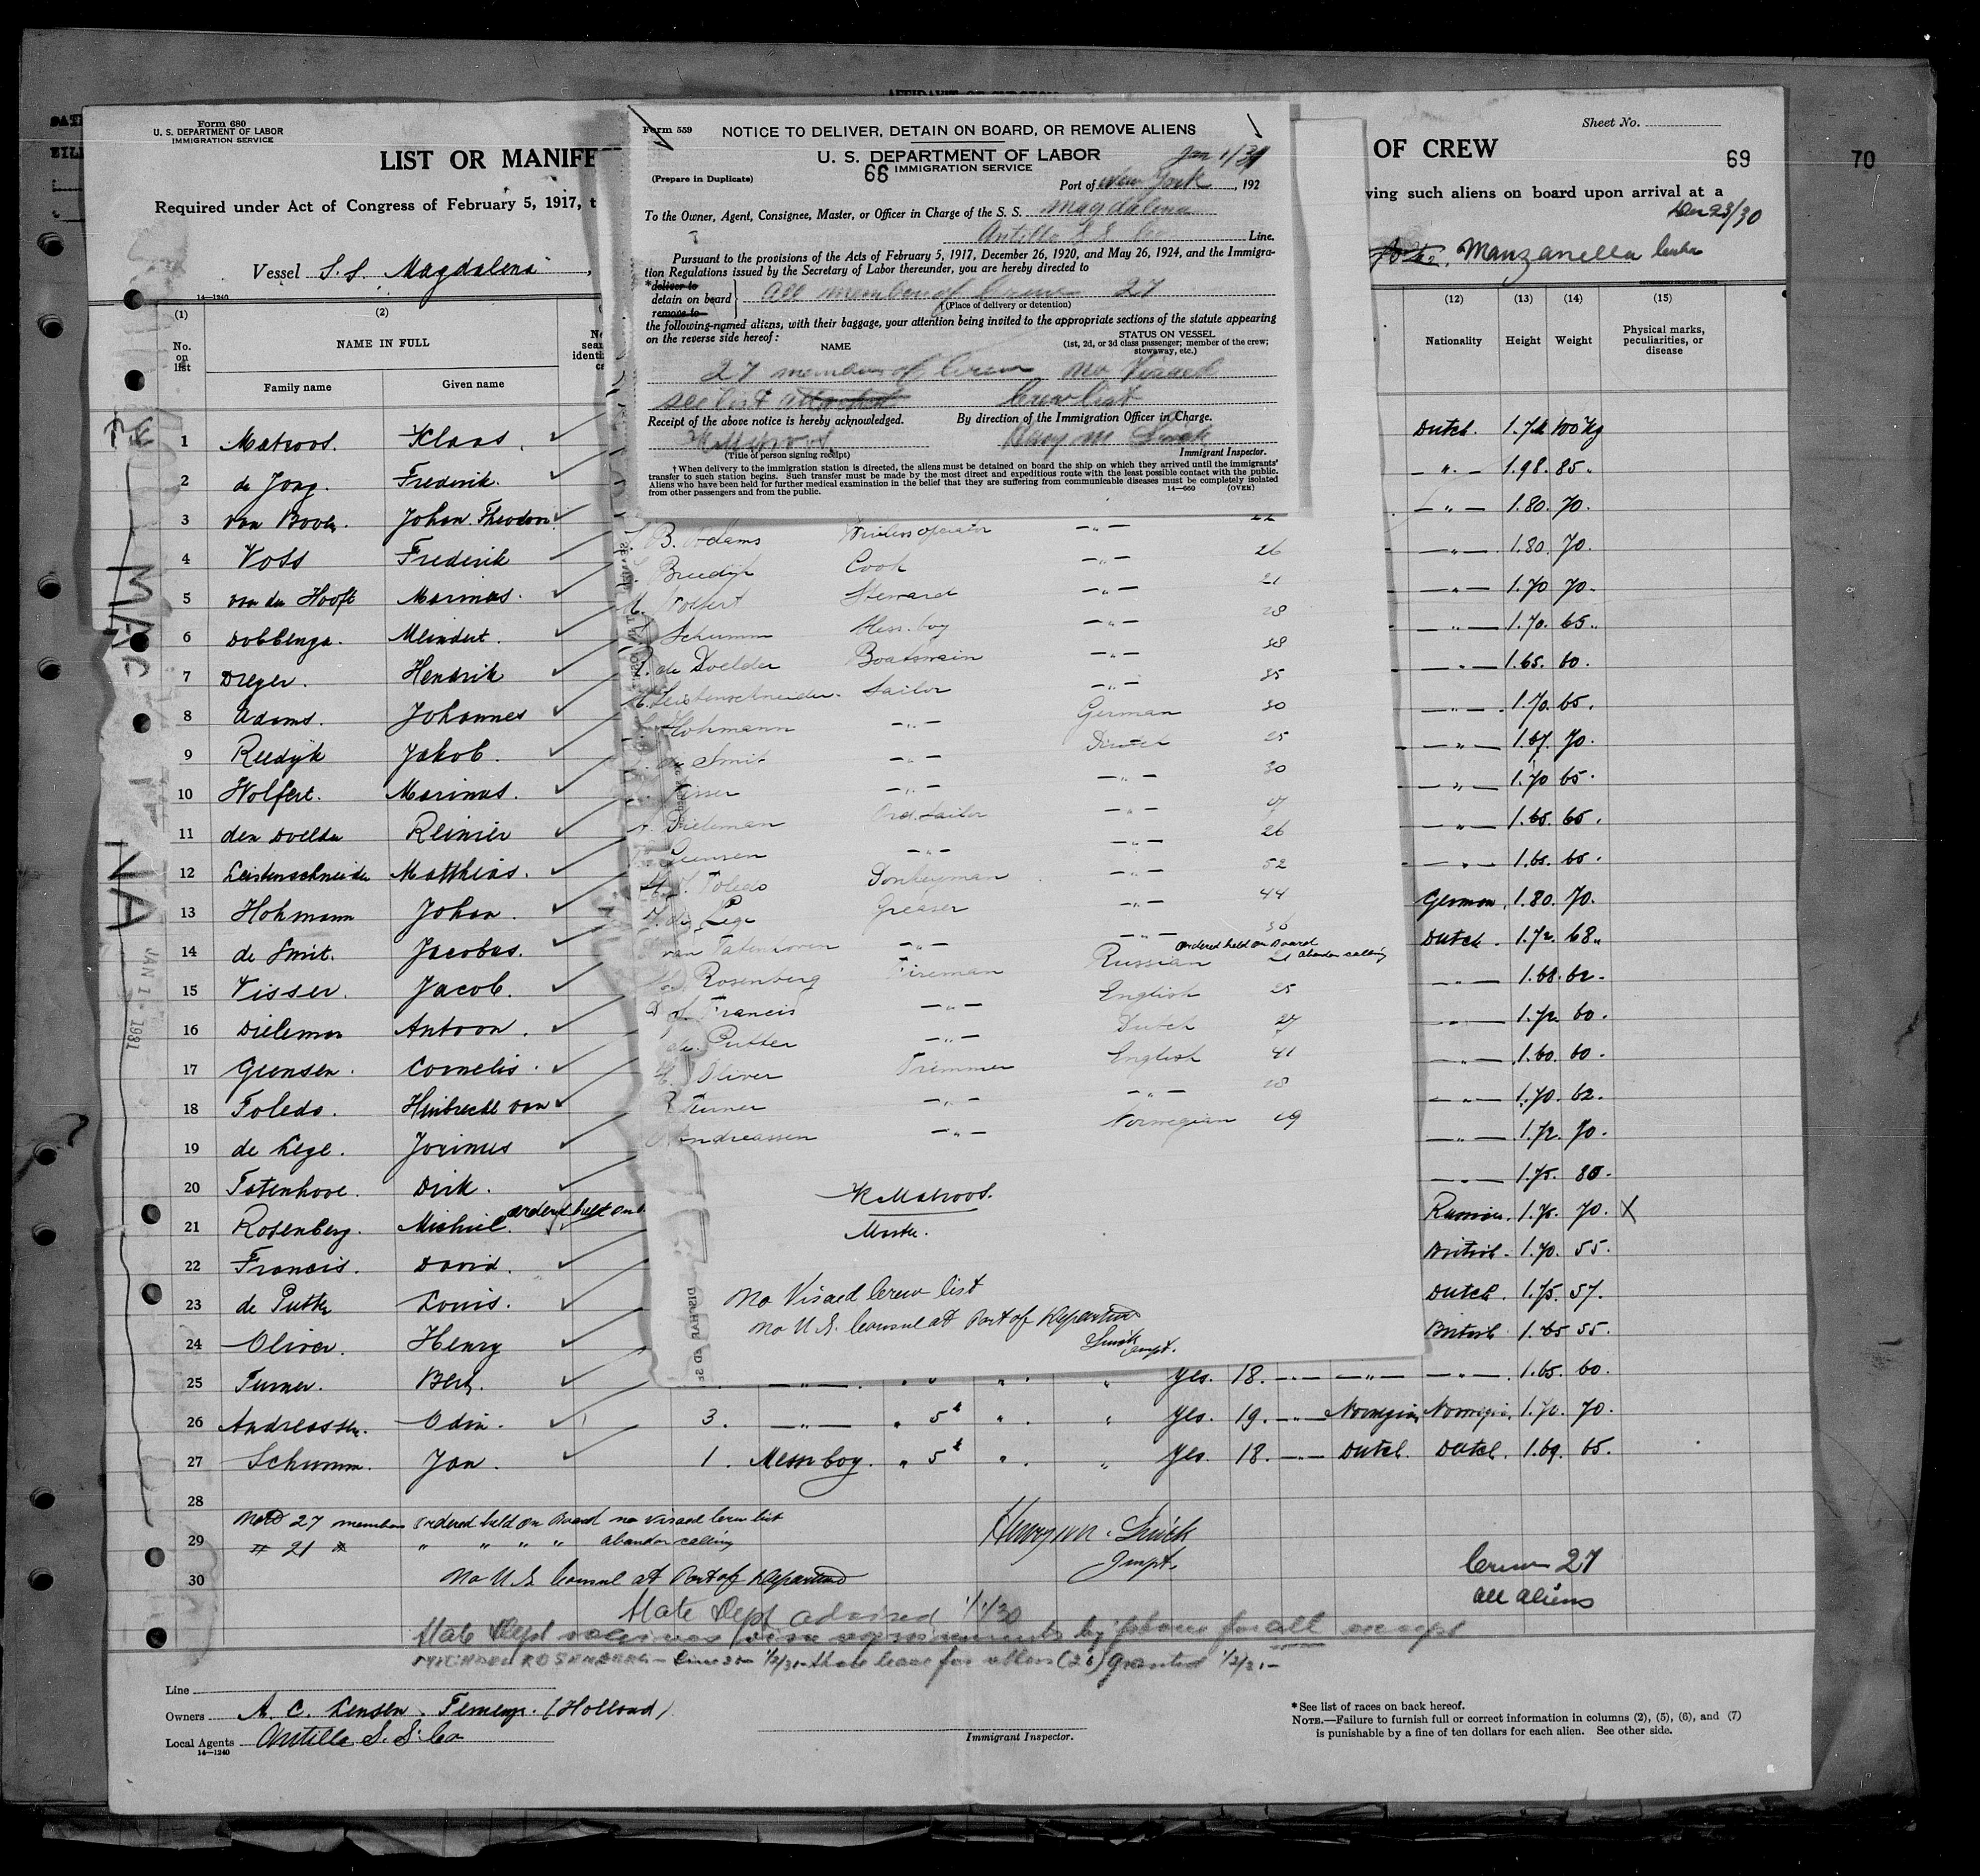 Form 680
U. S. DEPARTMENT OF LABOR
IMMIGRATION SERVICE
LIST OR MANIFE
OF CREW
Sheet No.
69
70
Required under Act of Congress of February 5, 1917, t
ving such aliens on board upon arrival at a
Dec 28/30
Vessel S.S. Magdalena
Manzanella Cuba
14—1240
Form 559
NOTICE TO DELIVER, DETAIN ON BOARD, OR REMOVE ALIENS
U. S. DEPARTMENT OF LABOR
66 IMMIGRATION SERVICE
Jan 1/31
(Prepare in Duplicate)
Port of New York, 192
To the Owner, Agent, Consignee, Master, or Officer in Charge of the S. S. Magdalena
Antilla S S Co Line.
Pursuant to the provisions of the Acts of February 5, 1917, December 26, 1920, and May 26, 1924, and the Immigra-
tion Regulations issued by the Secretary of Labor thereunder, you are hereby directed to
*deliver to
detain on board
remove to
All members of Crew 27
(Place of delivery or detention)
the following-named aliens, with their baggage, your attention being invited to the appropriate sections of the statute appearing
on the reverse side hereof:
NAME
STATUS ON VESSEL
(1st, 2d, or 3d class passenger; member of the crew;
stowaway, etc.)
27 members of Crew No Visaed
see list attached Crew list
Receipt of the above notice is hereby acknowledged.
By direction of the Immigration Officer in Charge.
K Matroos
(Title of person signing receipt)
Immigrant Inspector.
† When delivery to the immigration station is directed, the aliens must be detained on board the ship on which they arrived until the immigrants'
transfer to such station begins. Such transfer must be made by the most direct and expeditious route with the least possible contact with the public.
Aliens who have been held for further medical examination in the belief that they are suffering from communicable diseases must be completely isolated
from other passengers and from the public.
14—660 (OVER)
(1) (2) (12) (13) (14) (15)
No. on list
NAME IN FULL
Family name Given name
Nationality Height Weight Physical marks, peculiarities, or disease
1 Matroos. Klaas. Dutch. 1.72 100 Kg
2 de Jong. Frederik. — " — 1.98. 85.
3 van Boven. Johan Theodoor — " — 1.80. 70.
4 Voss Frederik — " — 1.80. 70.
5 van der Hooft Marinus. — " — 1.70 70.
6 Dobbenga. Meindert. — " — 1.70. 65.
7 Dreyer. Hendrik — " — 1.65. 60.
8 Adams. Johannes — " — 1.70. 65.
9 Reedijk Jakob. — " — 1.67. 70.
10 Wolfert. Marinus. — " — 1.70 65.
11 den Doelder Reinier — " — 1.65. 65.
12 Leistenschneider Matthias. — " — 1.65. 65.
13 Hohmann Johan. German. 1.80. 70.
14 de Smit. Jacobus. Dutch. 1.72. 68.
15 Visser. Jacob. — " — 1.68. 62.
16 Dieleman Antoon. — " — 1.72. 60.
17 Geensen. Cornelis. — " — 1.60. 60.
18 Toledo. Huibrecht van — " — 1.70. 62.
19 de Lege. Jorimus — " — 1.72. 70.
20 Tatenhove. Dirk. — " — 1.75. 80.
21 Rosenberg. Michiel. ordered held on b Russian. 1.75. 70. X
22 Francis. David. British. 1.70. 55.
23 de Putter Louis. Dutch. 1.75. 57.
24 Oliver. Henry British. 1.65 55.
25 Turner. Bert. — " — . " " " . " Yes. 18. — " — — " — — " — . 1.65. 60.
26 Andreassen. Odin. 3. — " — " 5 " . " Yes. 19. — " — Norwegian Norwegian. 1.70. 70.
27 Schumm. Jan. 1. Messboy. " 5 " . " Yes. 18. — " — Dutch. Dutch. 1.69. 65.
28
29
30
B. Adams Wireless operator — " — 22
Reedijk Cook — " — 26
M. Wolfert Steward — " — 21
Schumm Mess-boy — " — 18
R. den Doelder Boatswain — " — 38
M. Leistenschneider. Sailor — " — 35
Hohmann — " — German 30
de Smit — " — Dutch 25
Visser — " — — " — 30
A. Dieleman Ord. Sailor — " —
Geensen — " — — " — 26
Toledo Donkeyman — " — 52
de Lege Greaser — " — 44
van Tatenhoven — " — — " — 36
ordered held on Board
abandon calling
Rosenberg Fireman Russian
D. Francis — " — English 25
de Putter — " — Dutch 27
H. Oliver Tremmer English 41
B Turner — " — — " — 18
O Andreassen — " — Norwegian 19
K Matroos.
Master.
No Visaed Crew list
No U.S. Consul at Port of Departure
Inspt.
Note 27 members ordered held on Board no visaed Crew list
# 21 " " " " " abandon calling
No U S Consul at Port of Departure
Inspt.
Crew 27
all aliens
State Dept advised 1/1/30
State Dept waives visa requirements by phone for all except
MICHAEL ROSENBERG — 1/2/31 — shore leave for others (26) granted 1/2/31 —
Line
Owners A. C. Lensen. Terneuzen. (Holland)
Local Agents Antilla S. S. Co
14—1240
Immigrant Inspector.
* See list of races on back hereof.
NOTE.—Failure to furnish full or correct information in columns (2), (5), (6), and (7)
is punishable by a fine of ten dollars for each alien. See other side.
JAN 1 - 1931